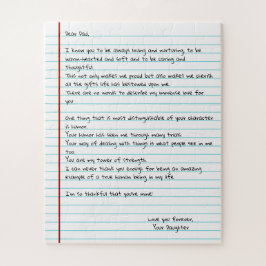 Dear Dad,
I know you to be always loving and nurturing, to be
warm-hearted and soft and to be caring and
thoughtful.
This not only makes me proud but also makes me cherish
all the gifts life has bestowed upon me.
There are no words to describe my immense love for
you.
One thing that is most distinguishable of your character
is humor.
Your humor has seen me through many trials.
Your way of dealing with things is what people see in me
too.
You are my tower of strength.
I can never thank you enough for being an amazing
example of a true human being in my life.
I'm so thankful that you're mine!
Love you forever,
Your Daughter